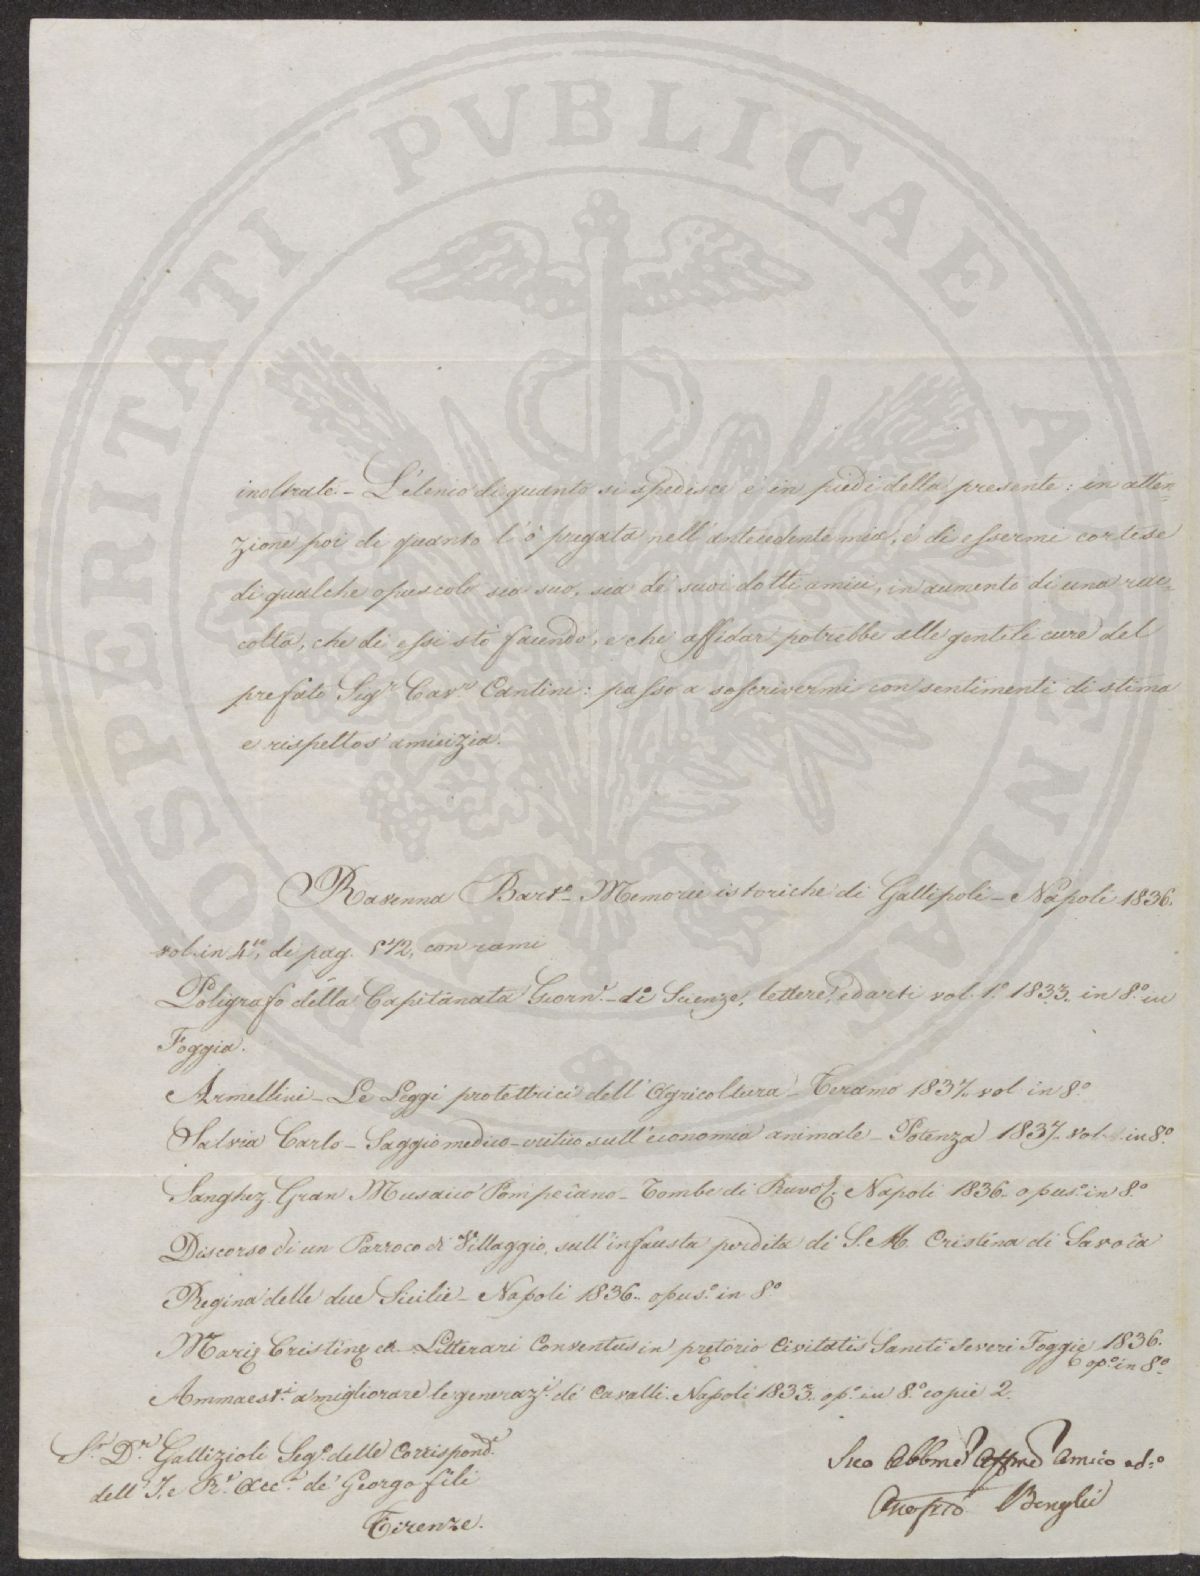 PROSPERITATI PVBLICAE AVGENDAE
inoltrate. - L'elenco di quanto si spedisce è in piedi della presente: in atten=
zione poi di quanto l'ò pregata nell'antecedente mia, è di essermi cortese
di qualche opuscolo sia suo, sia de' suoi dotti amici, in aumento di una rac=
colta, che di essi stò facendo, e che affidar potrebbe alle gentili cure del
prefato Sigr. Cavre. Cantini: passo a soscrivermi con sentimenti di stima
e rispettos' amicizia.
Ravenna Barto. - Memorie istoriche di Gallipoli - Napoli 1836.
vol. in 4to. di pag. 572, con rami
Poligrafo della Capitanata Giorn. - di Scienze, lettere, ed arti vol. 1.º 1833. in 8.º in
Foggia.
Armellini - Le Leggi protettrici dell'Agricoltura - Teramo 1837. vol. in 8.º
Salvia Carlo - Saggio medico-critico sull'economia animale - Potenza 1837. vol. in 8.º
Sanghez. Gran Musaico Pompeiano - Tombe di Ruvo. Napoli 1836. opus.º in 8.º
Discorso di un Parroco di Villaggio, sull'infausta perdita di S. M. Cristina di Savoia
Regina delle due Sicilie - Napoli 1836. opus.º in 8.º
Marię Cristinę - Litterari Conventus in pretorio Civitatis Sancti Severi Foggie 1836.
op.º in 8.º
Ammaest.ti a migliorare le generaz.i de' Cavalli. Napoli 1833. op.º in 8.º copie 2.
Sr. Dr. Gallizioli Seg.º delle Corrispond.e
dell'I. e R. Acc.a de' Georgofili
Firenze.
Suo Obbmo Affmo Amico ed.º